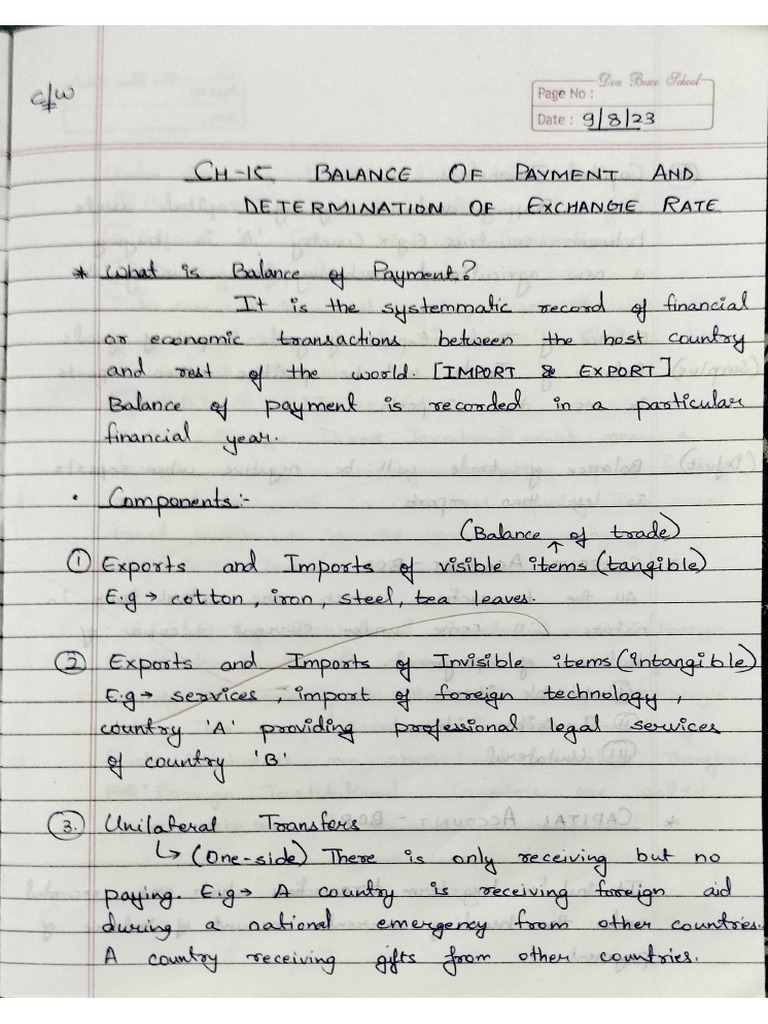 c/w
Don Bosco School
Page No :
Date : 9/8/23
CH-15 BALANCE OF PAYMENT AND
DETERMINATION OF EXCHANGE RATE
* What is Balance of Payment?
It is the systemmatic record of financial
or economic transactions between the host country
and rest of the world. [IMPORT & EXPORT]
Balance of payment is recorded in a particular
financial year.
• Components:-
(Balance of trade)
① Exports and Imports of visible items (tangible)
E.g → cotton, iron, steel, tea leaves.
② Exports and Imports of Invisible items (intangible)
E.g → services, import of foreign technology,
country 'A' providing professional legal services
of country 'B'
③. Unilateral Transfers
↳ (One-side) There is only receiving but no
paying. E.g → A country is receiving foreign aid
during a national emergency from other countries.
A country receiving gifts from other countries.